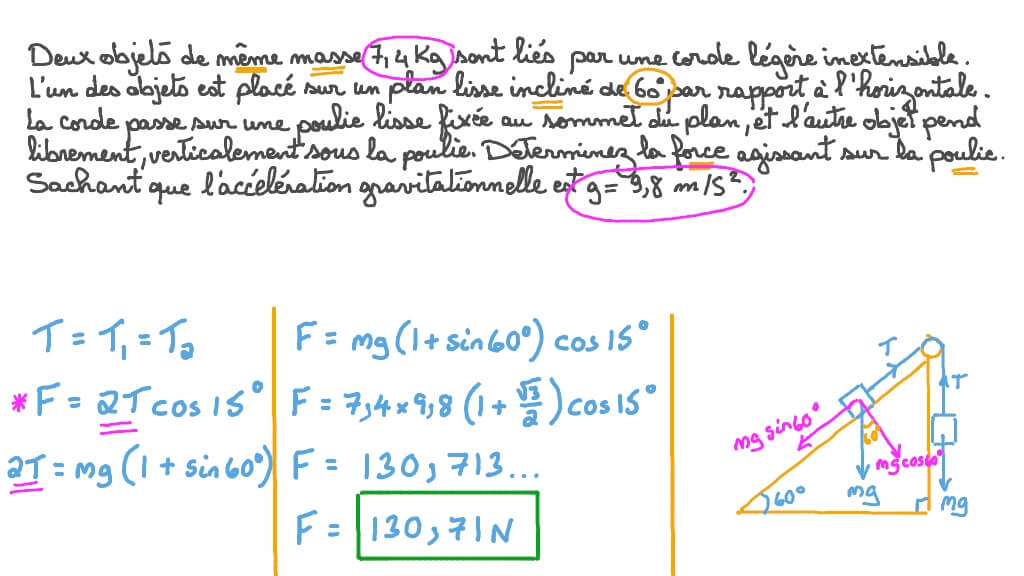 Deux objets de même masse 7,4 Kg sont liés par une corde légère inextensible.
L'un des objets est placé sur un plan lisse incliné de 60° par rapport à l'horizontale.
La corde passe sur une poulie lisse fixée au sommet du plan, et l'autre objet pend
librement, verticalement sous la poulie. Déterminez la force agissant sur la poulie.
Sachant que l'accélération gravitationnelle est g = 9,8 m/s².
T = T₁ = T₂
* F = 2T cos 15°
2T = mg (1 + sin 60°)
F = mg (1 + sin 60°) cos 15°
F = 7,4 × 9,8 (1 + √3/2) cos 15°
F = 130,713...
F = 130,71 N
T
T
mg sin 60°
60°
mg cos 60°
60°
mg
mg